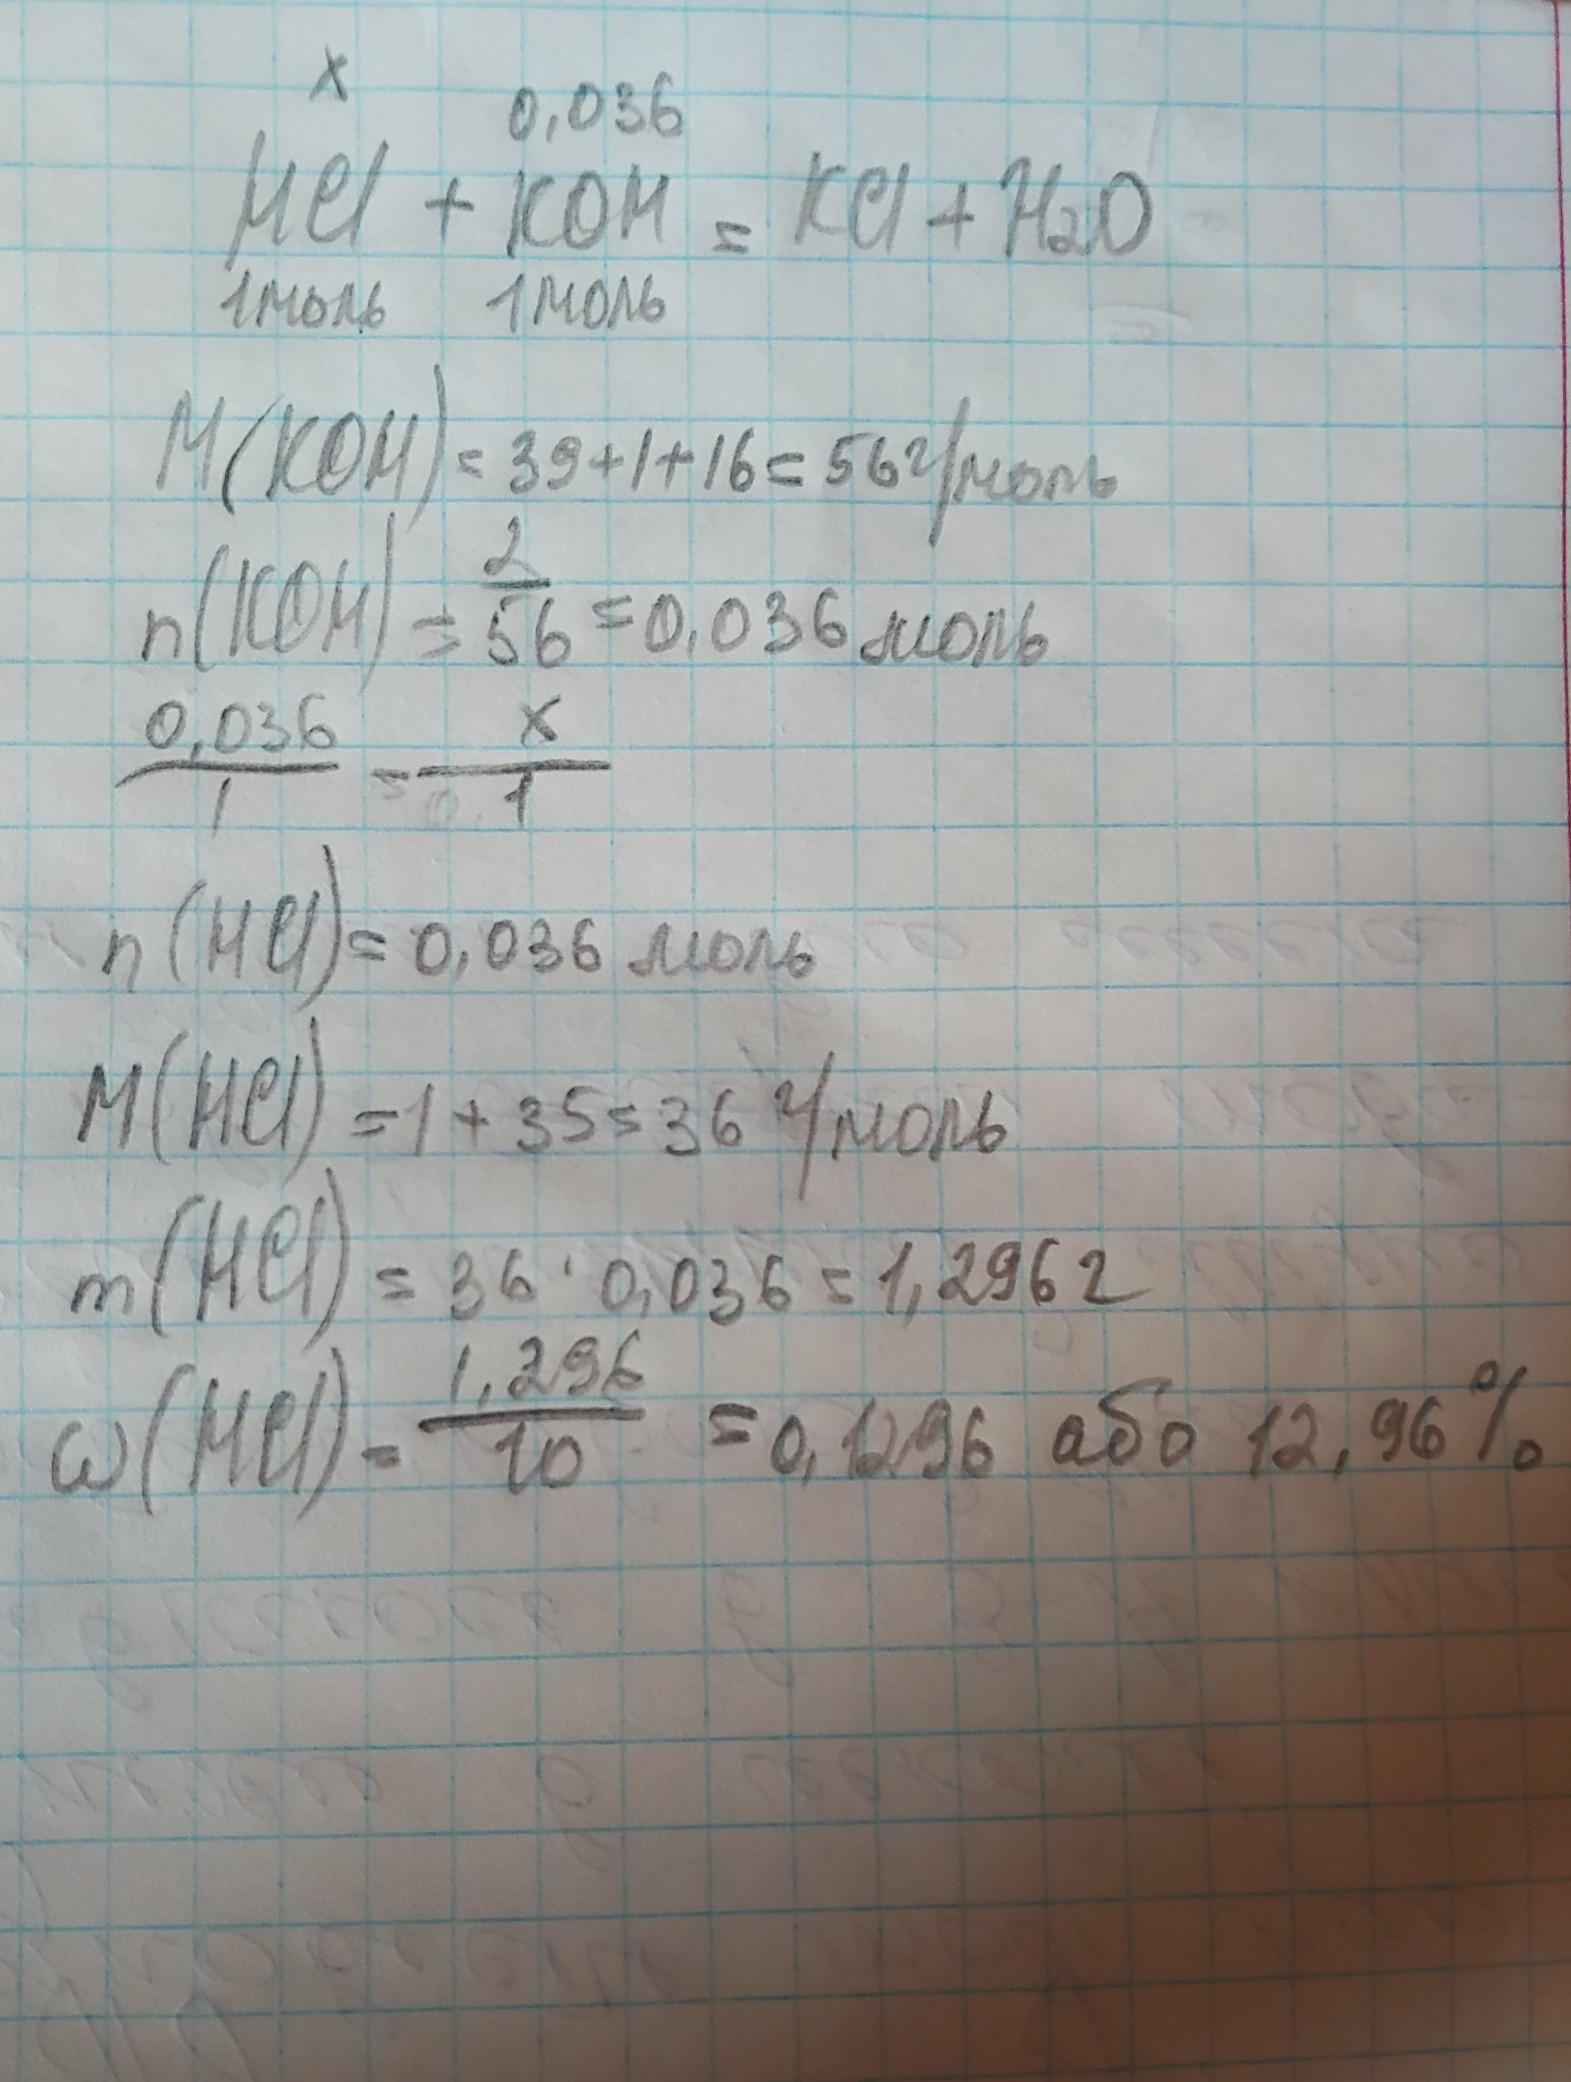 x 0,036
HCl + KOH = KCl + H2O
1моль 1моль
M(KOH) = 39+1+16 = 56г/моль
n(KOH) = 2/56 = 0,036 моль
0,036/1 = x/1
n(HCl) = 0,036 моль
M(HCl) = 1 + 35 = 36 г/моль
m(HCl) = 36 · 0,036 = 1,296г
ω(HCl) = 1,296/10 = 0,1296 або 12,96%